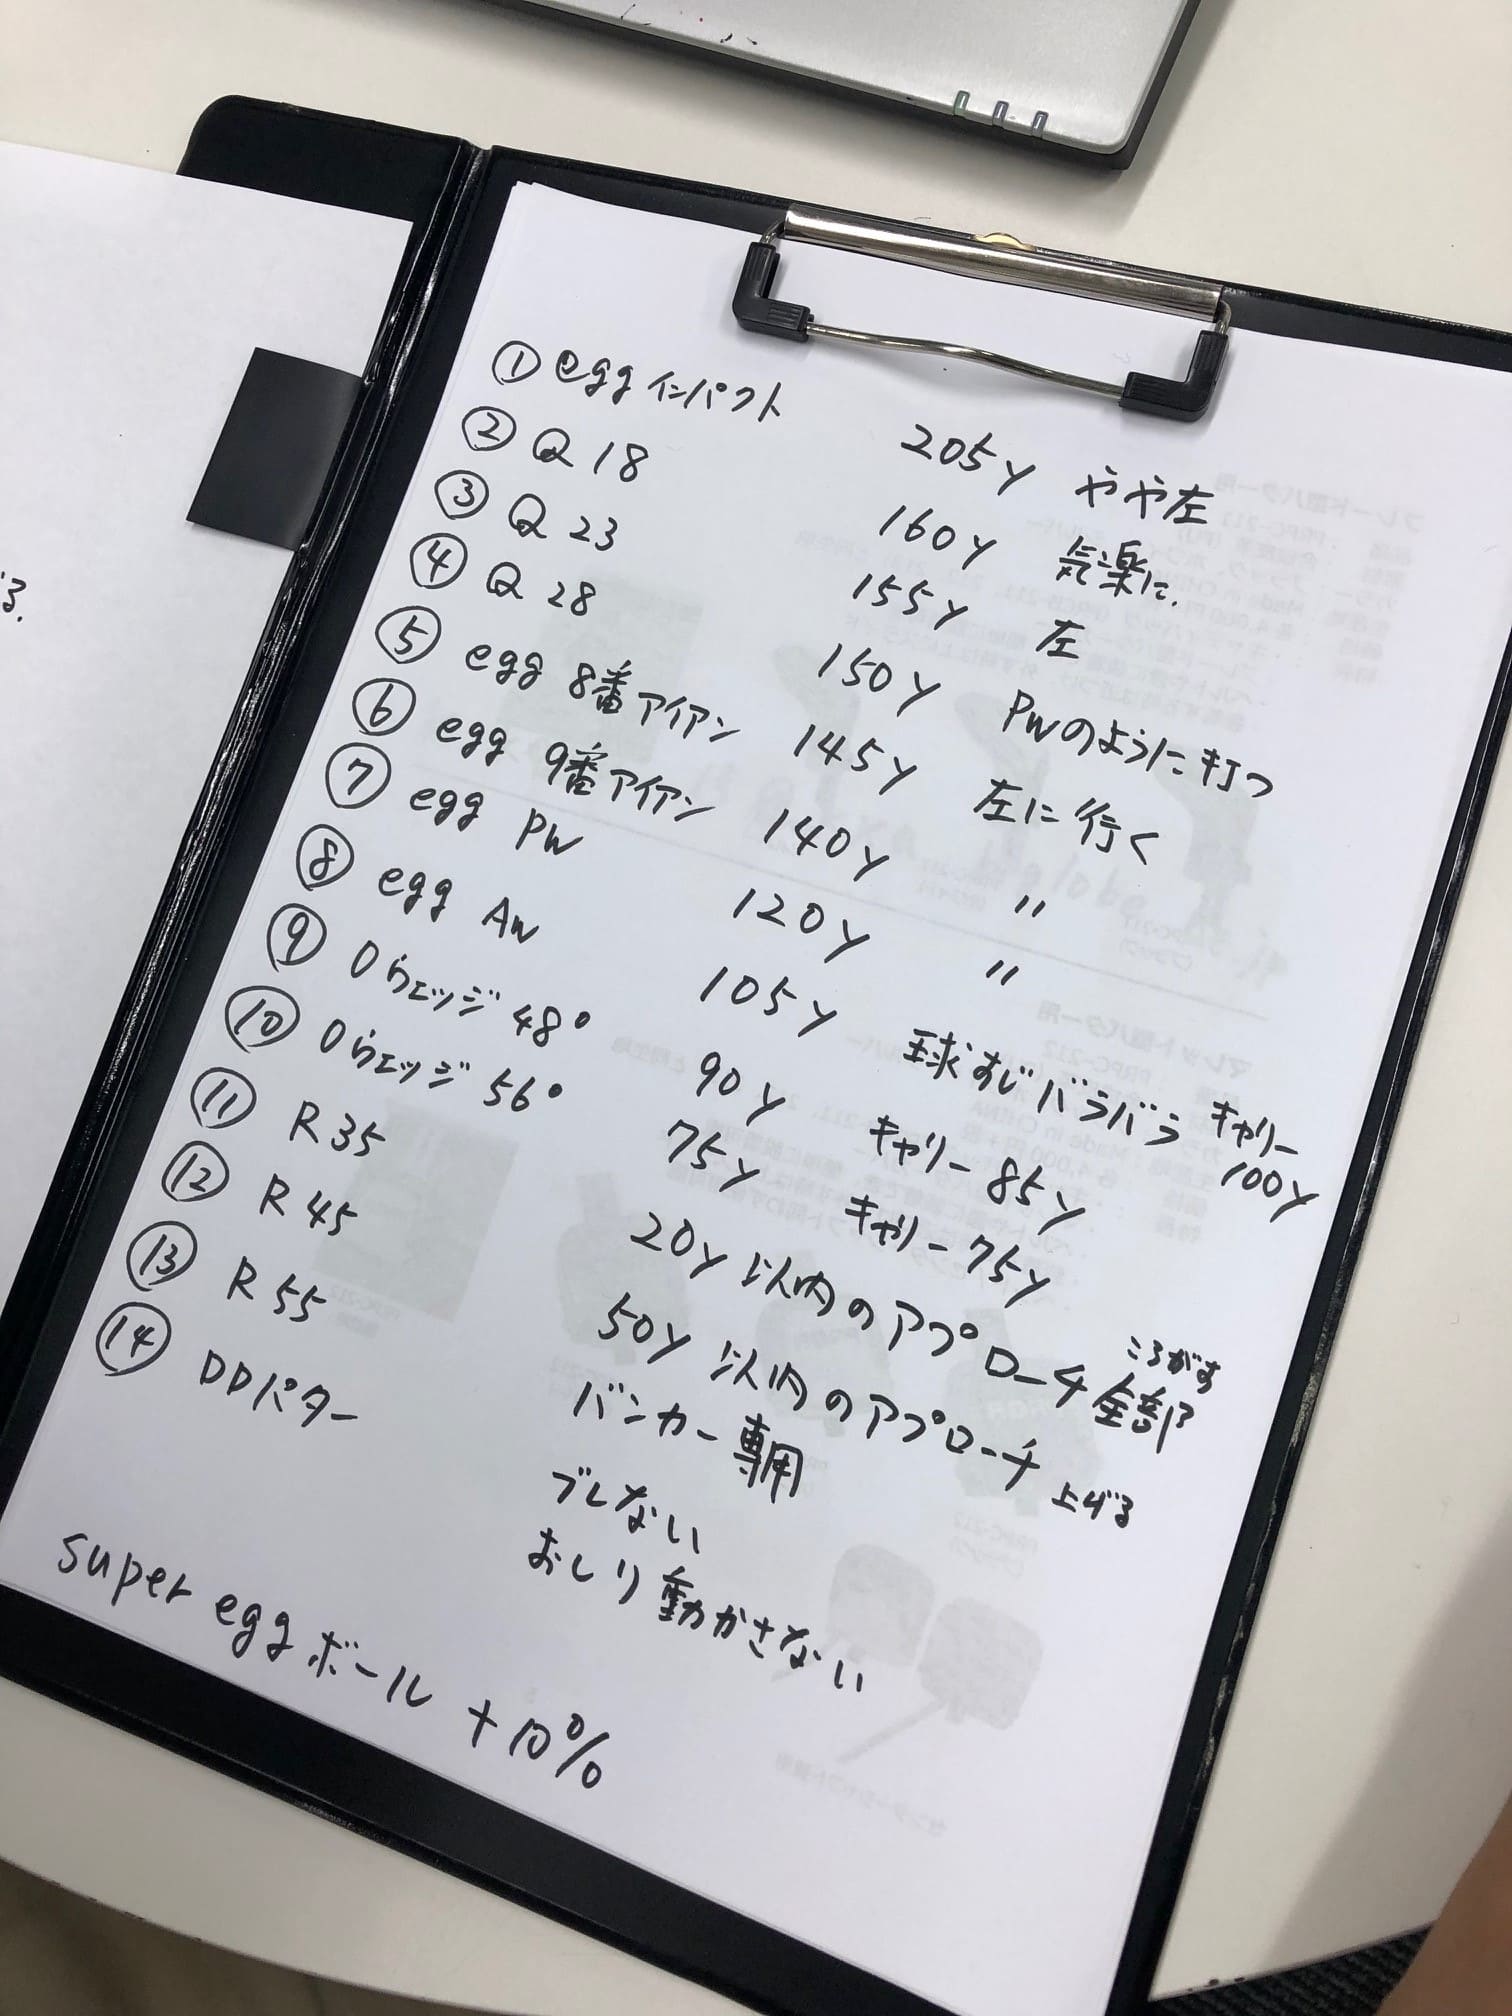 ① egg インパクト 205y やや左
② Q 18 160y 気楽に.
③ Q 23 155y 左
④ Q 28 150y PWのように打つ
⑤ egg 8番アイアン 145y 左に行く
⑥ egg 9番アイアン 140y 〃
⑦ egg PW 120y 〃
⑧ egg AW 105y 球すじバラバラ キャリー 100y
⑨ Oウェッジ 48° 90y キャリー 85y
⑩ Oウェッジ 56° 75y キャリー 75y
⑪ R 35 20y 以内のアプローチ全部 ころがす
⑫ R 45 50y 以内のアプローチ 上げる
⑬ R 55 バンカー専用
⑭ DDパター ブレない
おしり動かさない
super egg ボール +10%
る.